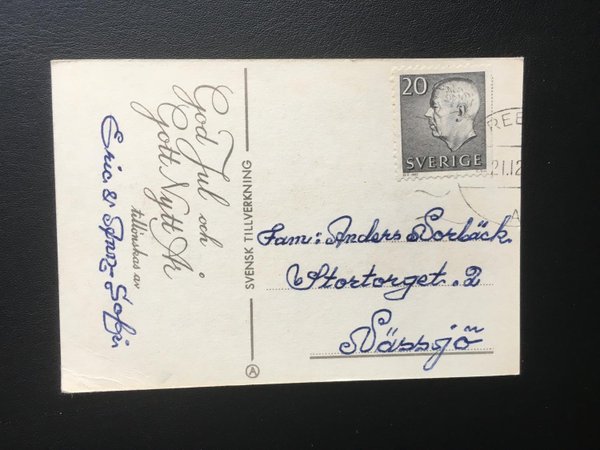 God Jul och
Gott Nytt År
tillönskas av
Eric &
SVENSK TILLVERKNING
A
20
SVERIGE
21.12
Fam: Anders
Stortorget. 2
Nässjö